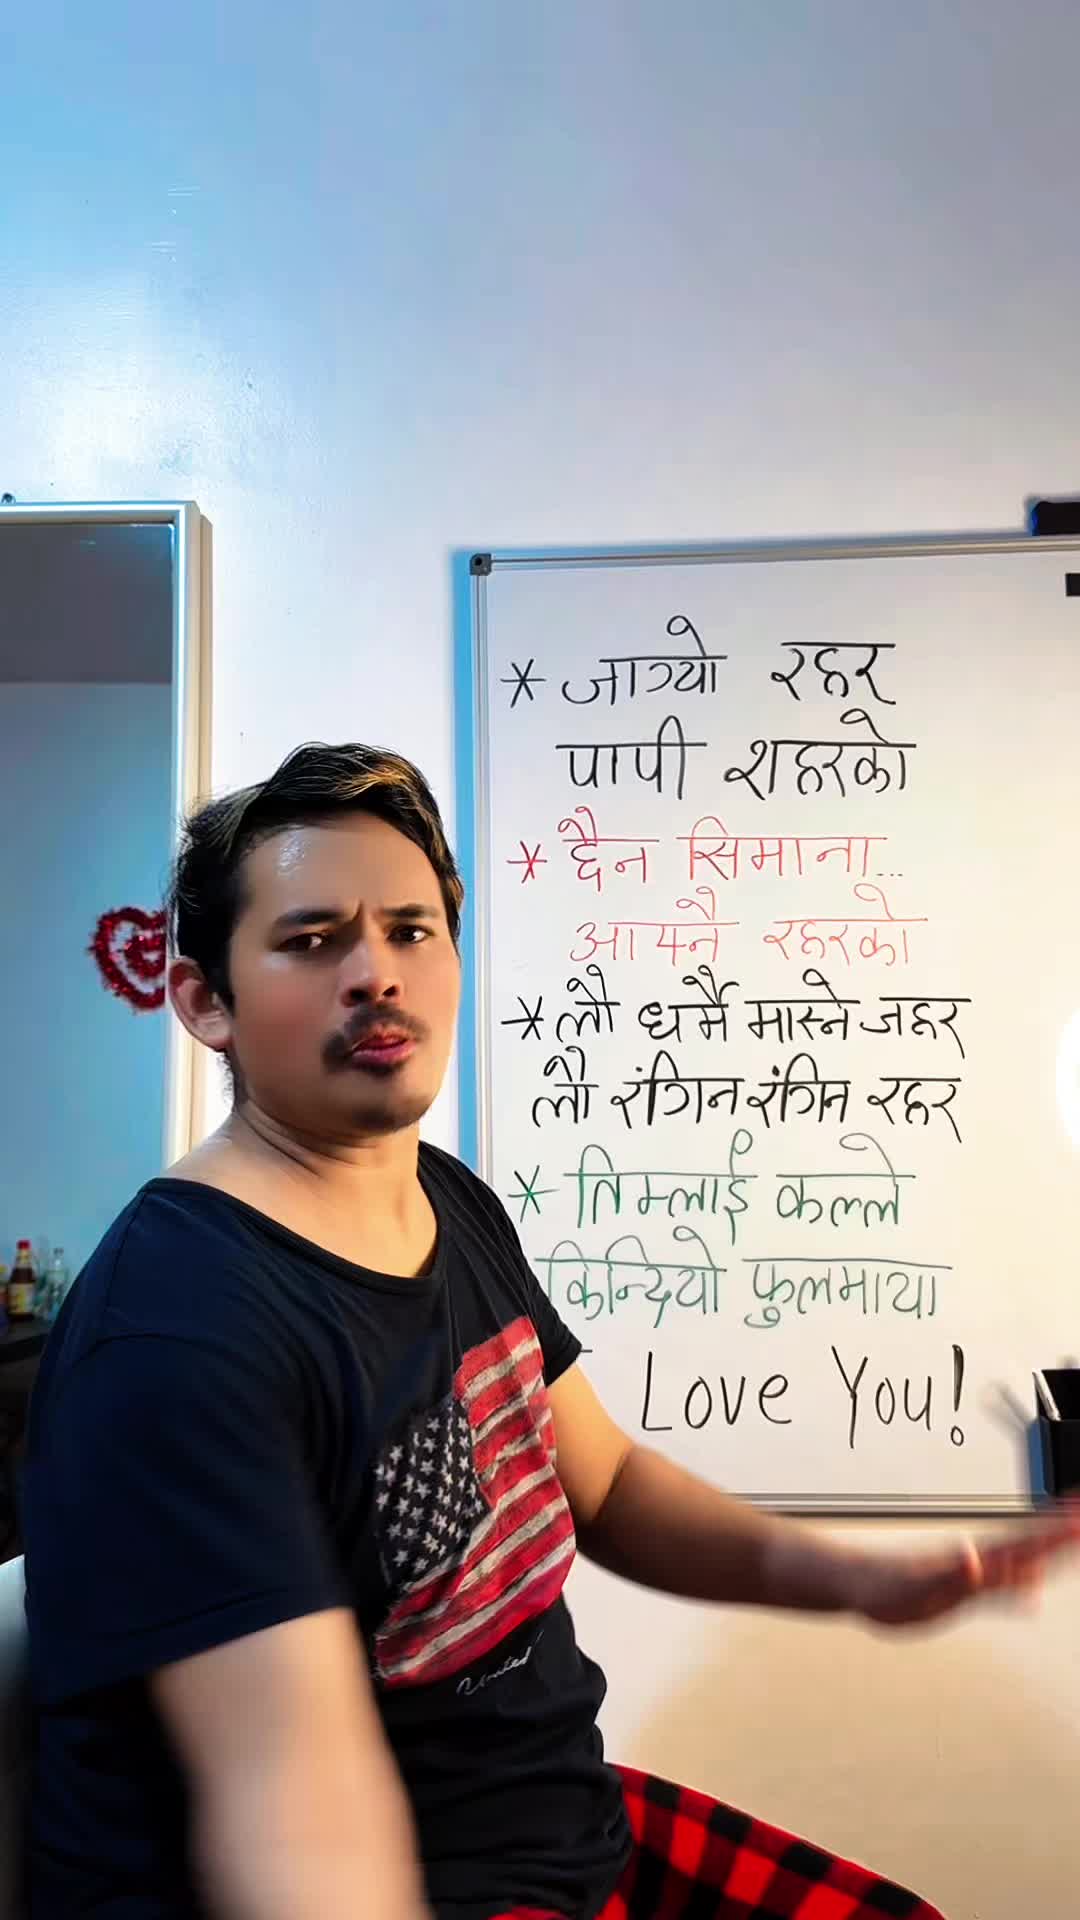 * जाग्यो रहर
पापी शहरको
* छैन सिमाना...
आफ्नै रहरको
* लौ धर्मै मास्ने जहर
लौ रंगिन रंगिन रहर
* तिम्लाई कल्ले
किन्दियो फुलमाया
Love You!
United